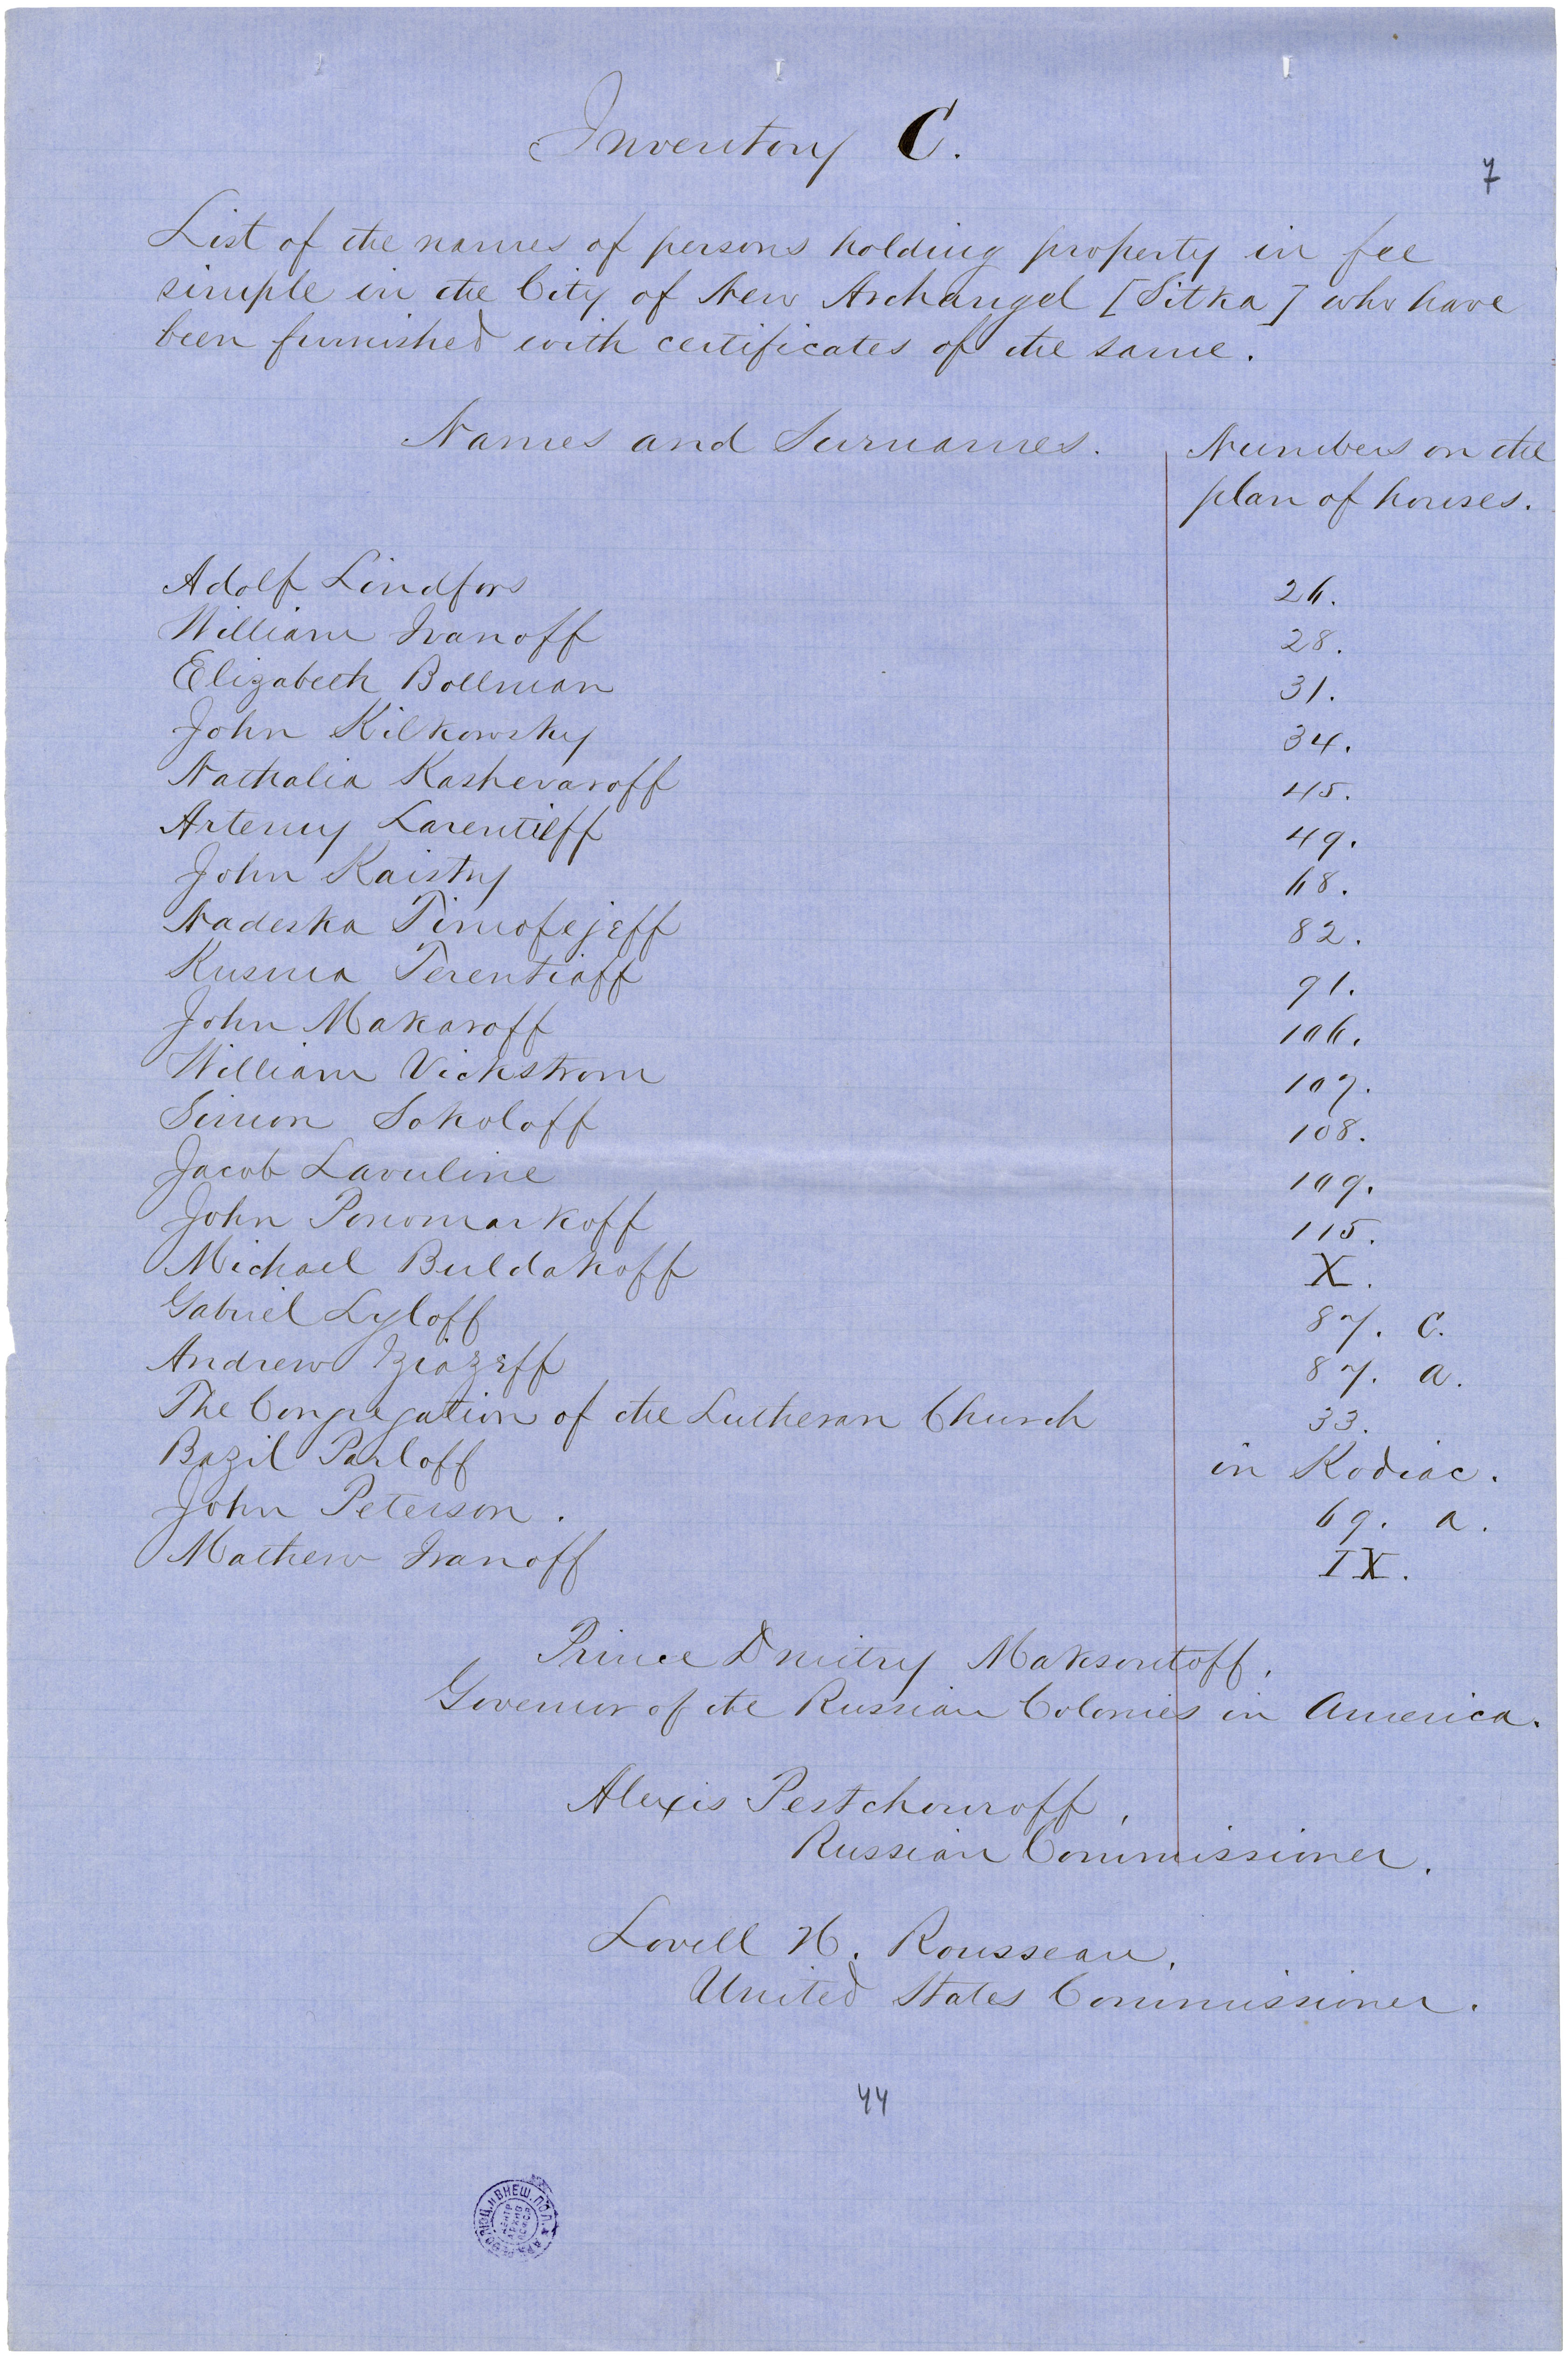 Inventory C.
7
List of the names of persons holding property in fee
simple in the City of New Archangel [Sitka] who have
been furnished with certificates of the same.
Names and Surnames.
Numbers on the
plan of houses.
Adolf Lindfors 26.
William Ivanoff 28.
Elizabeth Bollman 31.
John Kilkowsky 34.
Nathalia Kashevaroff 45.
Artemy Larentieff 49.
John Kaistry 68.
Nadeska Timofejeff 82.
Kusma Terentiaff 91.
John Makaroff 106.
William Vickstrom 107.
Simon Sokoloff 108.
Jacob Lavuline 109.
John Ponomarkoff 115.
Michael Buldakoff X.
Gabriel Lyloff 87. C.
Andrew 87. a.
The Congregation of the Lutheran Church 33.
Bazil Parloff in Kodiac.
John Peterson. 69. a.
Mathew Ivanoff IX.
Prince Dmitry Maksoutoff,
Governor of the Russian Colonies in America.
Alexis Pestchouroff,
Russian Commissioner.
Lovell H. Rousseau,
United States Commissioner.
44
ВНЕШ. ПОЛ.